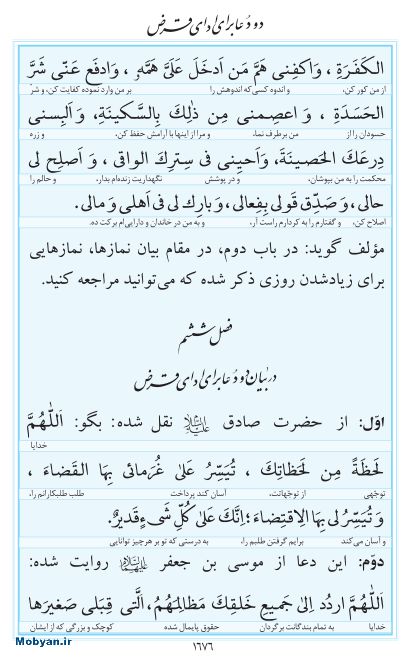 دو دعا برای ادای قرض
الكَفَرَةِ ، وَاكفِنى هَمَّ مَن اَدخَلَ عَلَىَّ هَمَّهُ ، وَادفَع عَنّى شَرَّ
از من کور کن، و اندوه کسی که اندوهش را بر من وارد نموده کفایت کن، و شرّ
الحَسَدَةِ ، وَ اعصِمنى مِن ذٰلِكَ بِالسَّكينَةِ، وَ اَلبِسنى
حسودان را از من برطرف نما، و مرا از اینها با آرامش حفظ کن. و زره
دِرعَكَ الحَصينَةَ، وَاَحيِنى فى سِترِكَ الواقى ، وَ اَصلِح لى
محکمت را به من بپوشان، و در پوشش نگهداریت زنده‌ام بدار. و حالم را
حالى، وَ صَدِّق قَولى بِفِعالى، وَبارِك لى فى اَهلى وَ مالى.
اصلاح کن، و گفتارم را به کردارم راست آر، و به من در خاندان و دارایی‌ام برکت ده.
مؤلف گوید: در باب دوم، در مقام بیان نمازها، نمازهایی
برای زیادشدن روزی ذکر شده که می‌توانید مراجعه کنید.
فصل ششم
در بیان دو دعا برای ادای قرض
اوّل: از حضرت صادق علیه‌السلام نقل شده: بگو: اَللّٰهُمَّ
خدایا
لَحظَةً مِن لَحَظاتِكَ ، تُيَسِّرُ عَلىٰ غُرَمائى بِهَا القَضاءَ ،
توجّهی از توجّهاتت، آسان کند پرداخت طلب طلبکارانم را،
وَ تُيَسِّرُ لى بِهَا الاِقتِضاءَ؛ اِنَّكَ عَلىٰ كُلِّ شَىءٍ قَديرٌ.
و آسان می‌کند برایم گرفتن طلبم را، به درستی که تو بر هرچیز توانایی
دوّم: این دعا از موسی بن جعفر علیهماالسلام روایت شده:
اَللّٰهُمَّ اردُد اِلىٰ جَميعِ خَلقِكَ مَظالِمَهُمُ، الَّتى قِبَلى صَغيرَها
خدایا به تمام بندگانت برگردان حقوق پایمال شده کوچک و بزرگی که از ایشان
١٦٧٦
Mobyan.ir